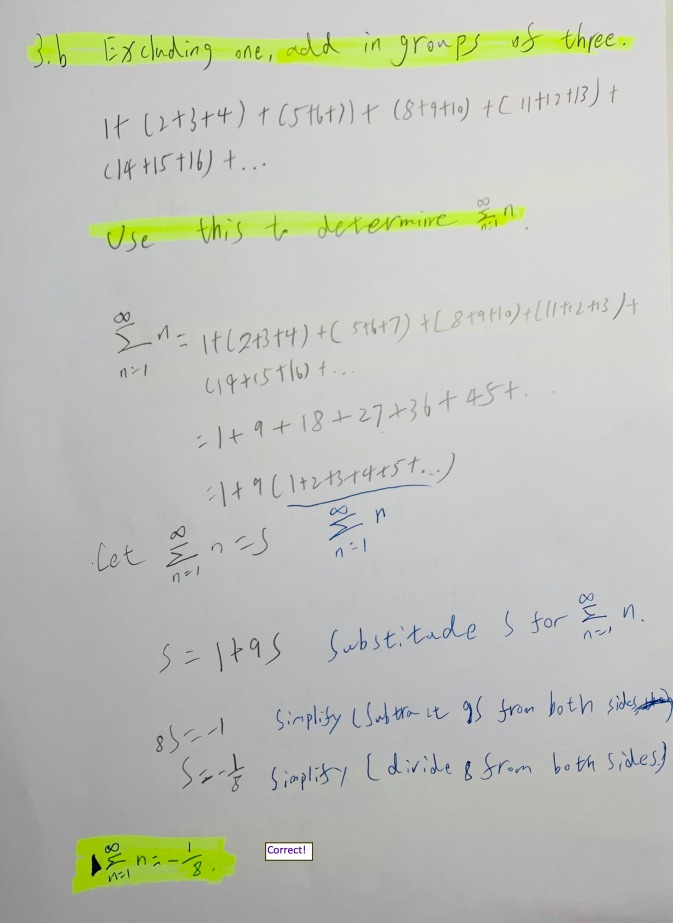 3.b Excluding one, add in groups of three.
1+ (2+3+4) + (5+6+7) + (8+9+10) + (11+12+13) +
(14+15+16) + ...
Use this to determine ∞ Σ n=1 n.
∞ Σ n=1 n = 1+(2+3+4)+(5+6+7)+(8+9+10)+(11+12+13)+
(14+15+16)+...
= 1+9+18+27+36+45+...
= 1+9(1+2+3+4+5+...)
Let ∞ Σ n=1 n = S ∞ Σ n=1 n
S = 1+9S Substitude S for ∞ Σ n=1 n.
8S = -1 Simplify (Subtract 9S from both sides)
S = -1/8 Simplify (divide 8 from both sides)
∞ Σ n=1 n = -1/8. Correct!